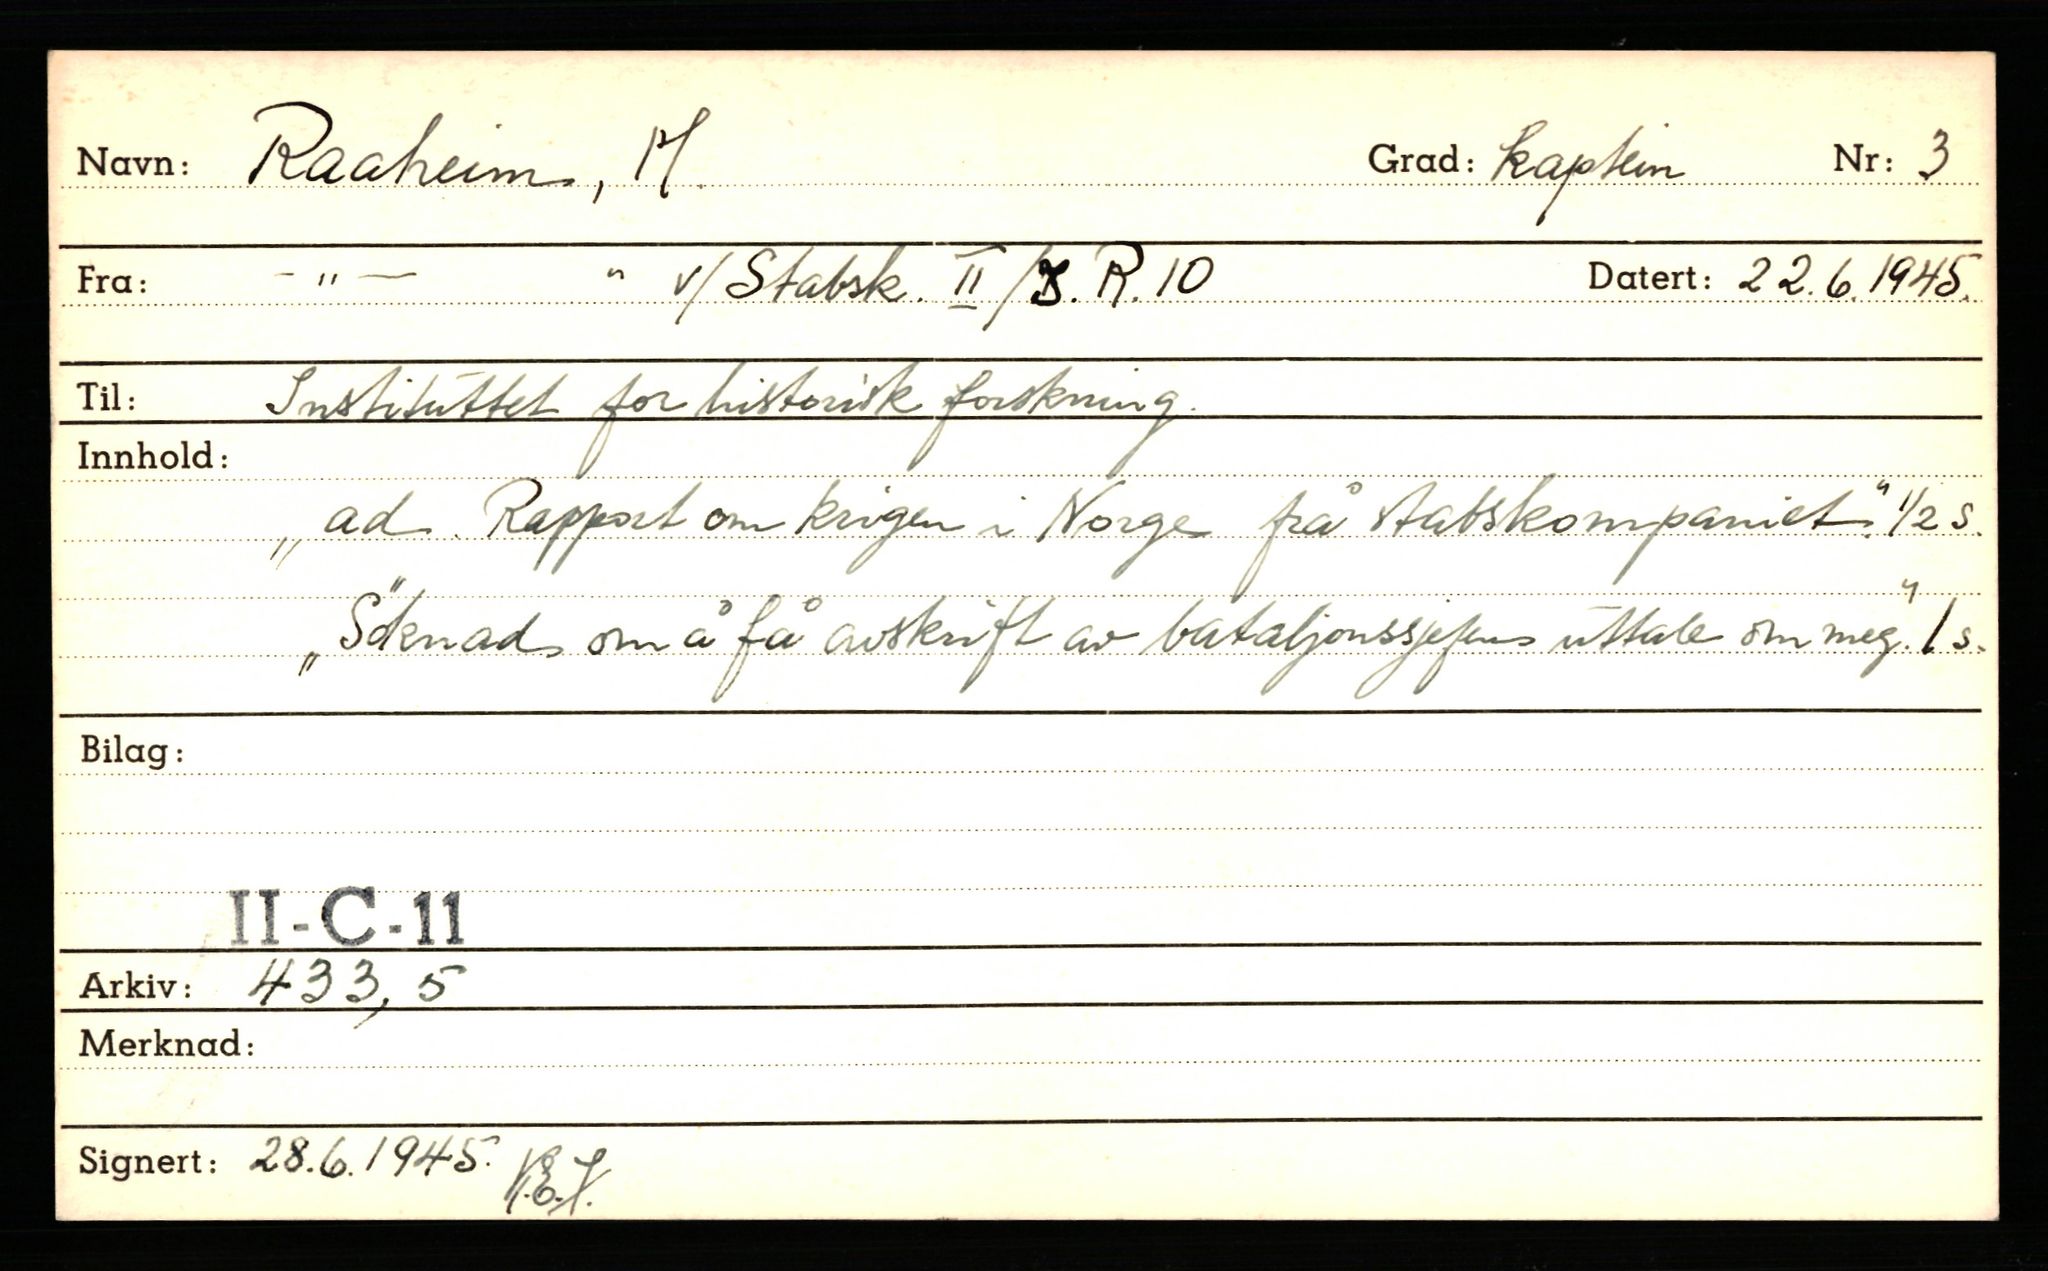 Navn: Raaheim, M. Grad: kaptein Nr: 3
Fra: - " - " v/ Stabsk. II / I. R. 10 Datert: 22.6.1945.
Til: Instituttet for historisk forskning.
Innhold:
„ad. Rapport om krigen i Norge frå stabskompaniet." 1/2 s.
„Söknad om å få avskrift av bataljonssjefens uttale om meg." 1 s.
Bilag:
II-C-11
Arkiv: 433,5
Merknad:
Signert: 28.6.1945.